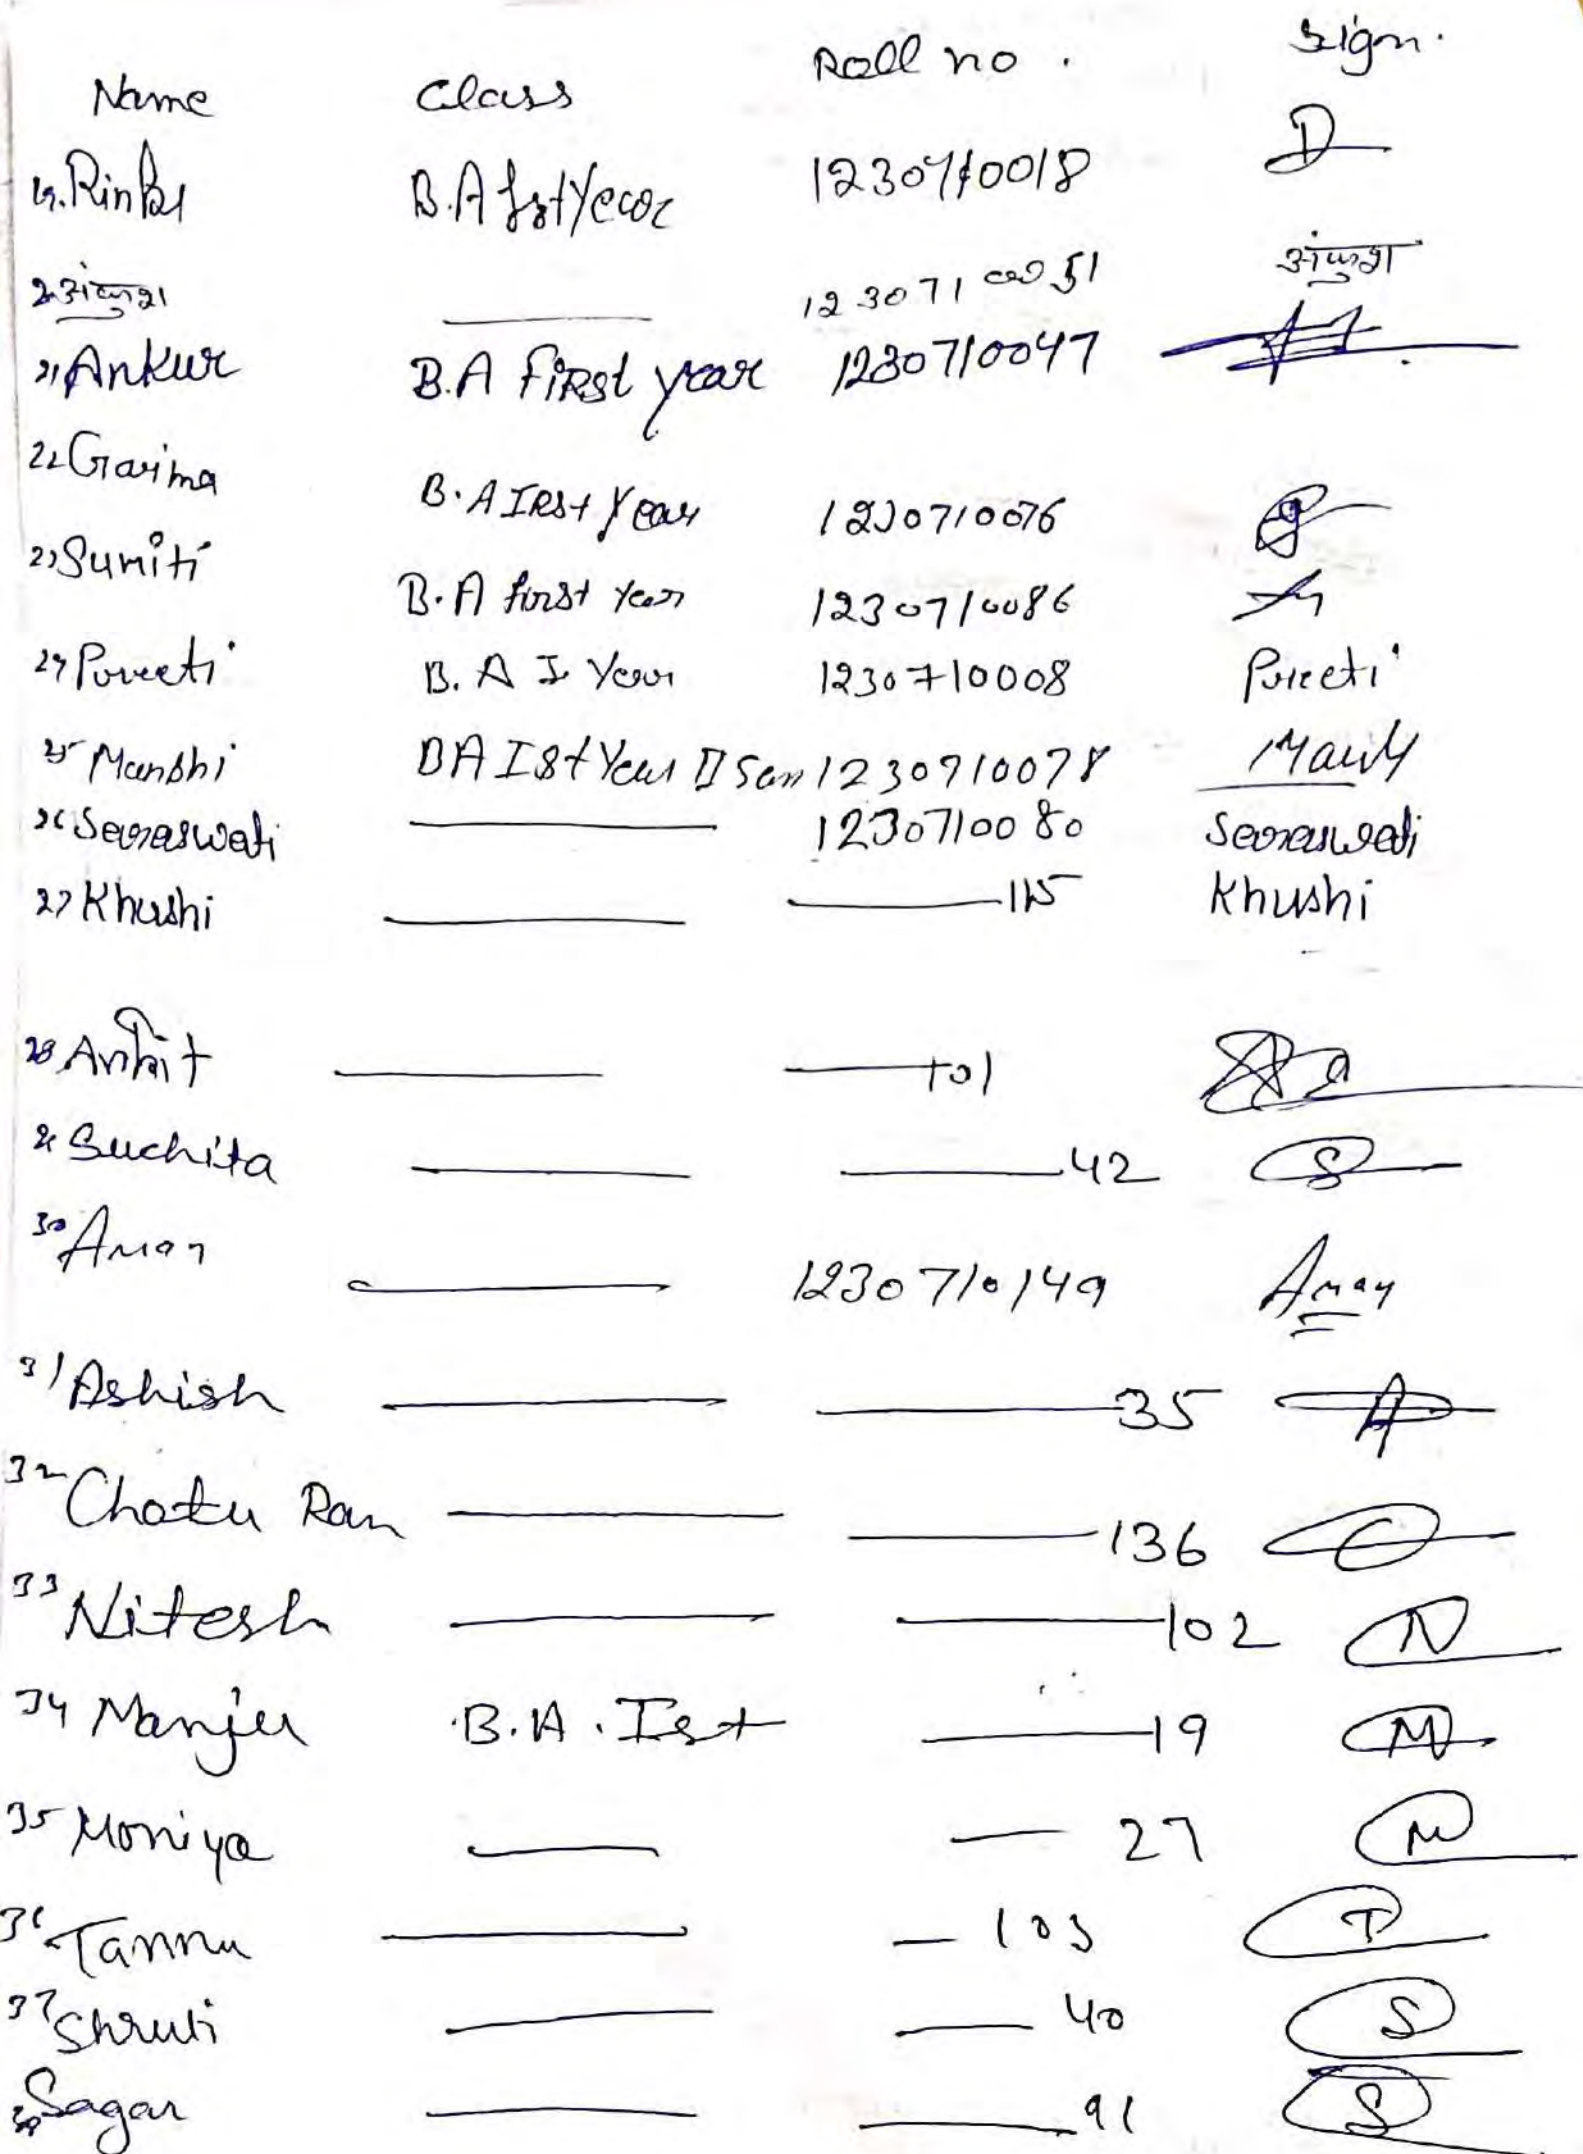 Name Class Roll no. Sign.
19. Rinku B.A Ist Year 1230710018 D
2 अंकुश —— 1230710051 अंकुश
21 Ankur B.A First year 1230710047
22 Garima B.A IRst Year 1230710076 g
23 Suniti B.A first Year 1230710086
24 Preeti B.A I Year 1230710008 Preeti
25 Manshi BA Ist Year II Sem 1230710078
26 Saraswati —— 1230710080 Saraswati
27 Khushi —— ——115 Khushi
28 Ankit —— ——101
29 Suchita —— ——42 S
30 Aman —— 1230710149 Aman
31 Ashish —— ——35 A
32 Chotu Ram —— ——136 C
33 Nitesh —— ——102 N
34 Manju B.A. Ist ——19 M
35 Moniya —— — 27 M
36 Tannu —— — 103 T
37 Shruti —— — 40 S
38 Sagar —— ——91 S